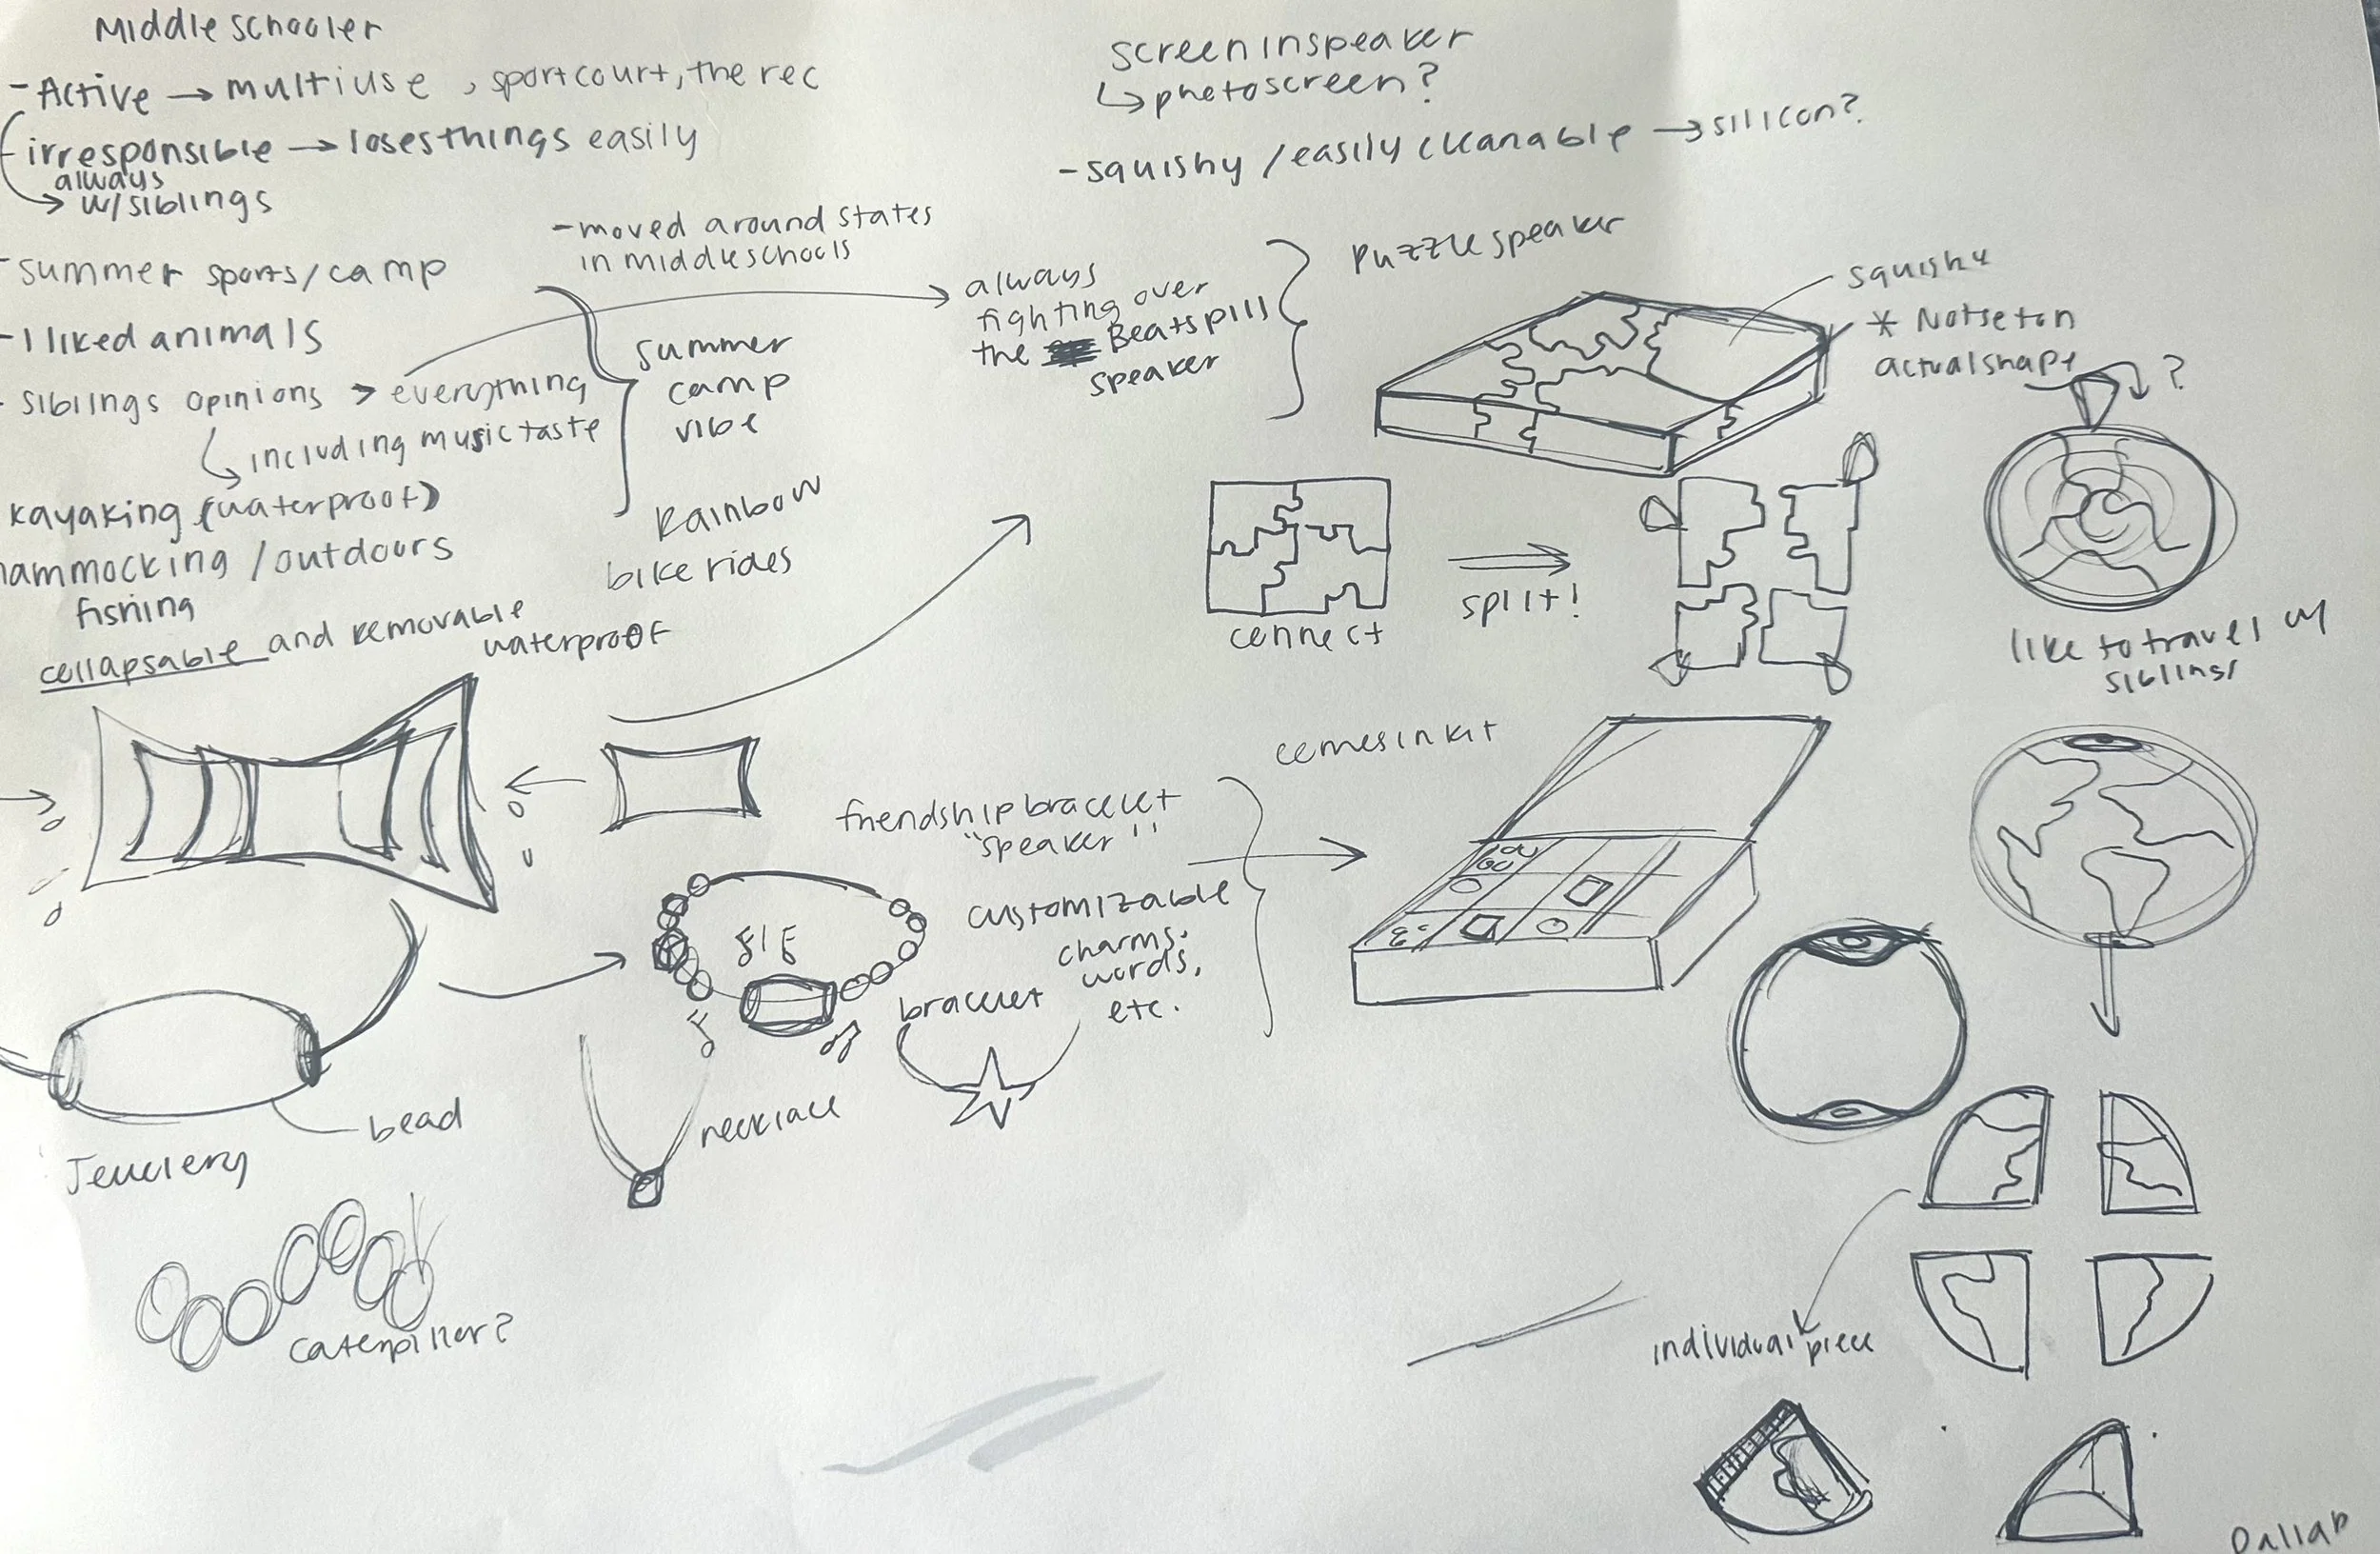 Middle schooler
- Active → multiuse, sport court, the rec
- irresponsible → loses things easily
always
→ w/siblings
- summer sports/camp
- I liked animals
- siblings opinions > everything
↳ including music taste
kayaking (waterproof)
hammocking / outdoors
fishing
collapsable and removable
waterproof
- moved around states
in middle schools
summer
camp
vibe
Rainbow
bike rides
always
fighting over
the Beats pill
speaker
screen in speaker
↳ photo screen?
- squishy / easily cleanable → silicon?
Puzzle speaker
squishy
* Not set on
actual shape
?
connect
split!
like to travel w/
siblings
comes in kit
friendship bracelet
"speaker"
customizable
charms,
words,
etc.
bracelet
necklace
bead
Jewelery
caterpiller?
individual piece